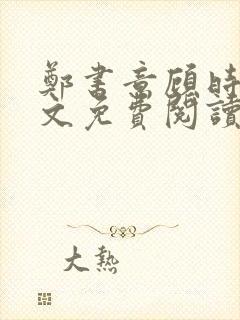 鄭書意顧時
文免費閱讀
大熱